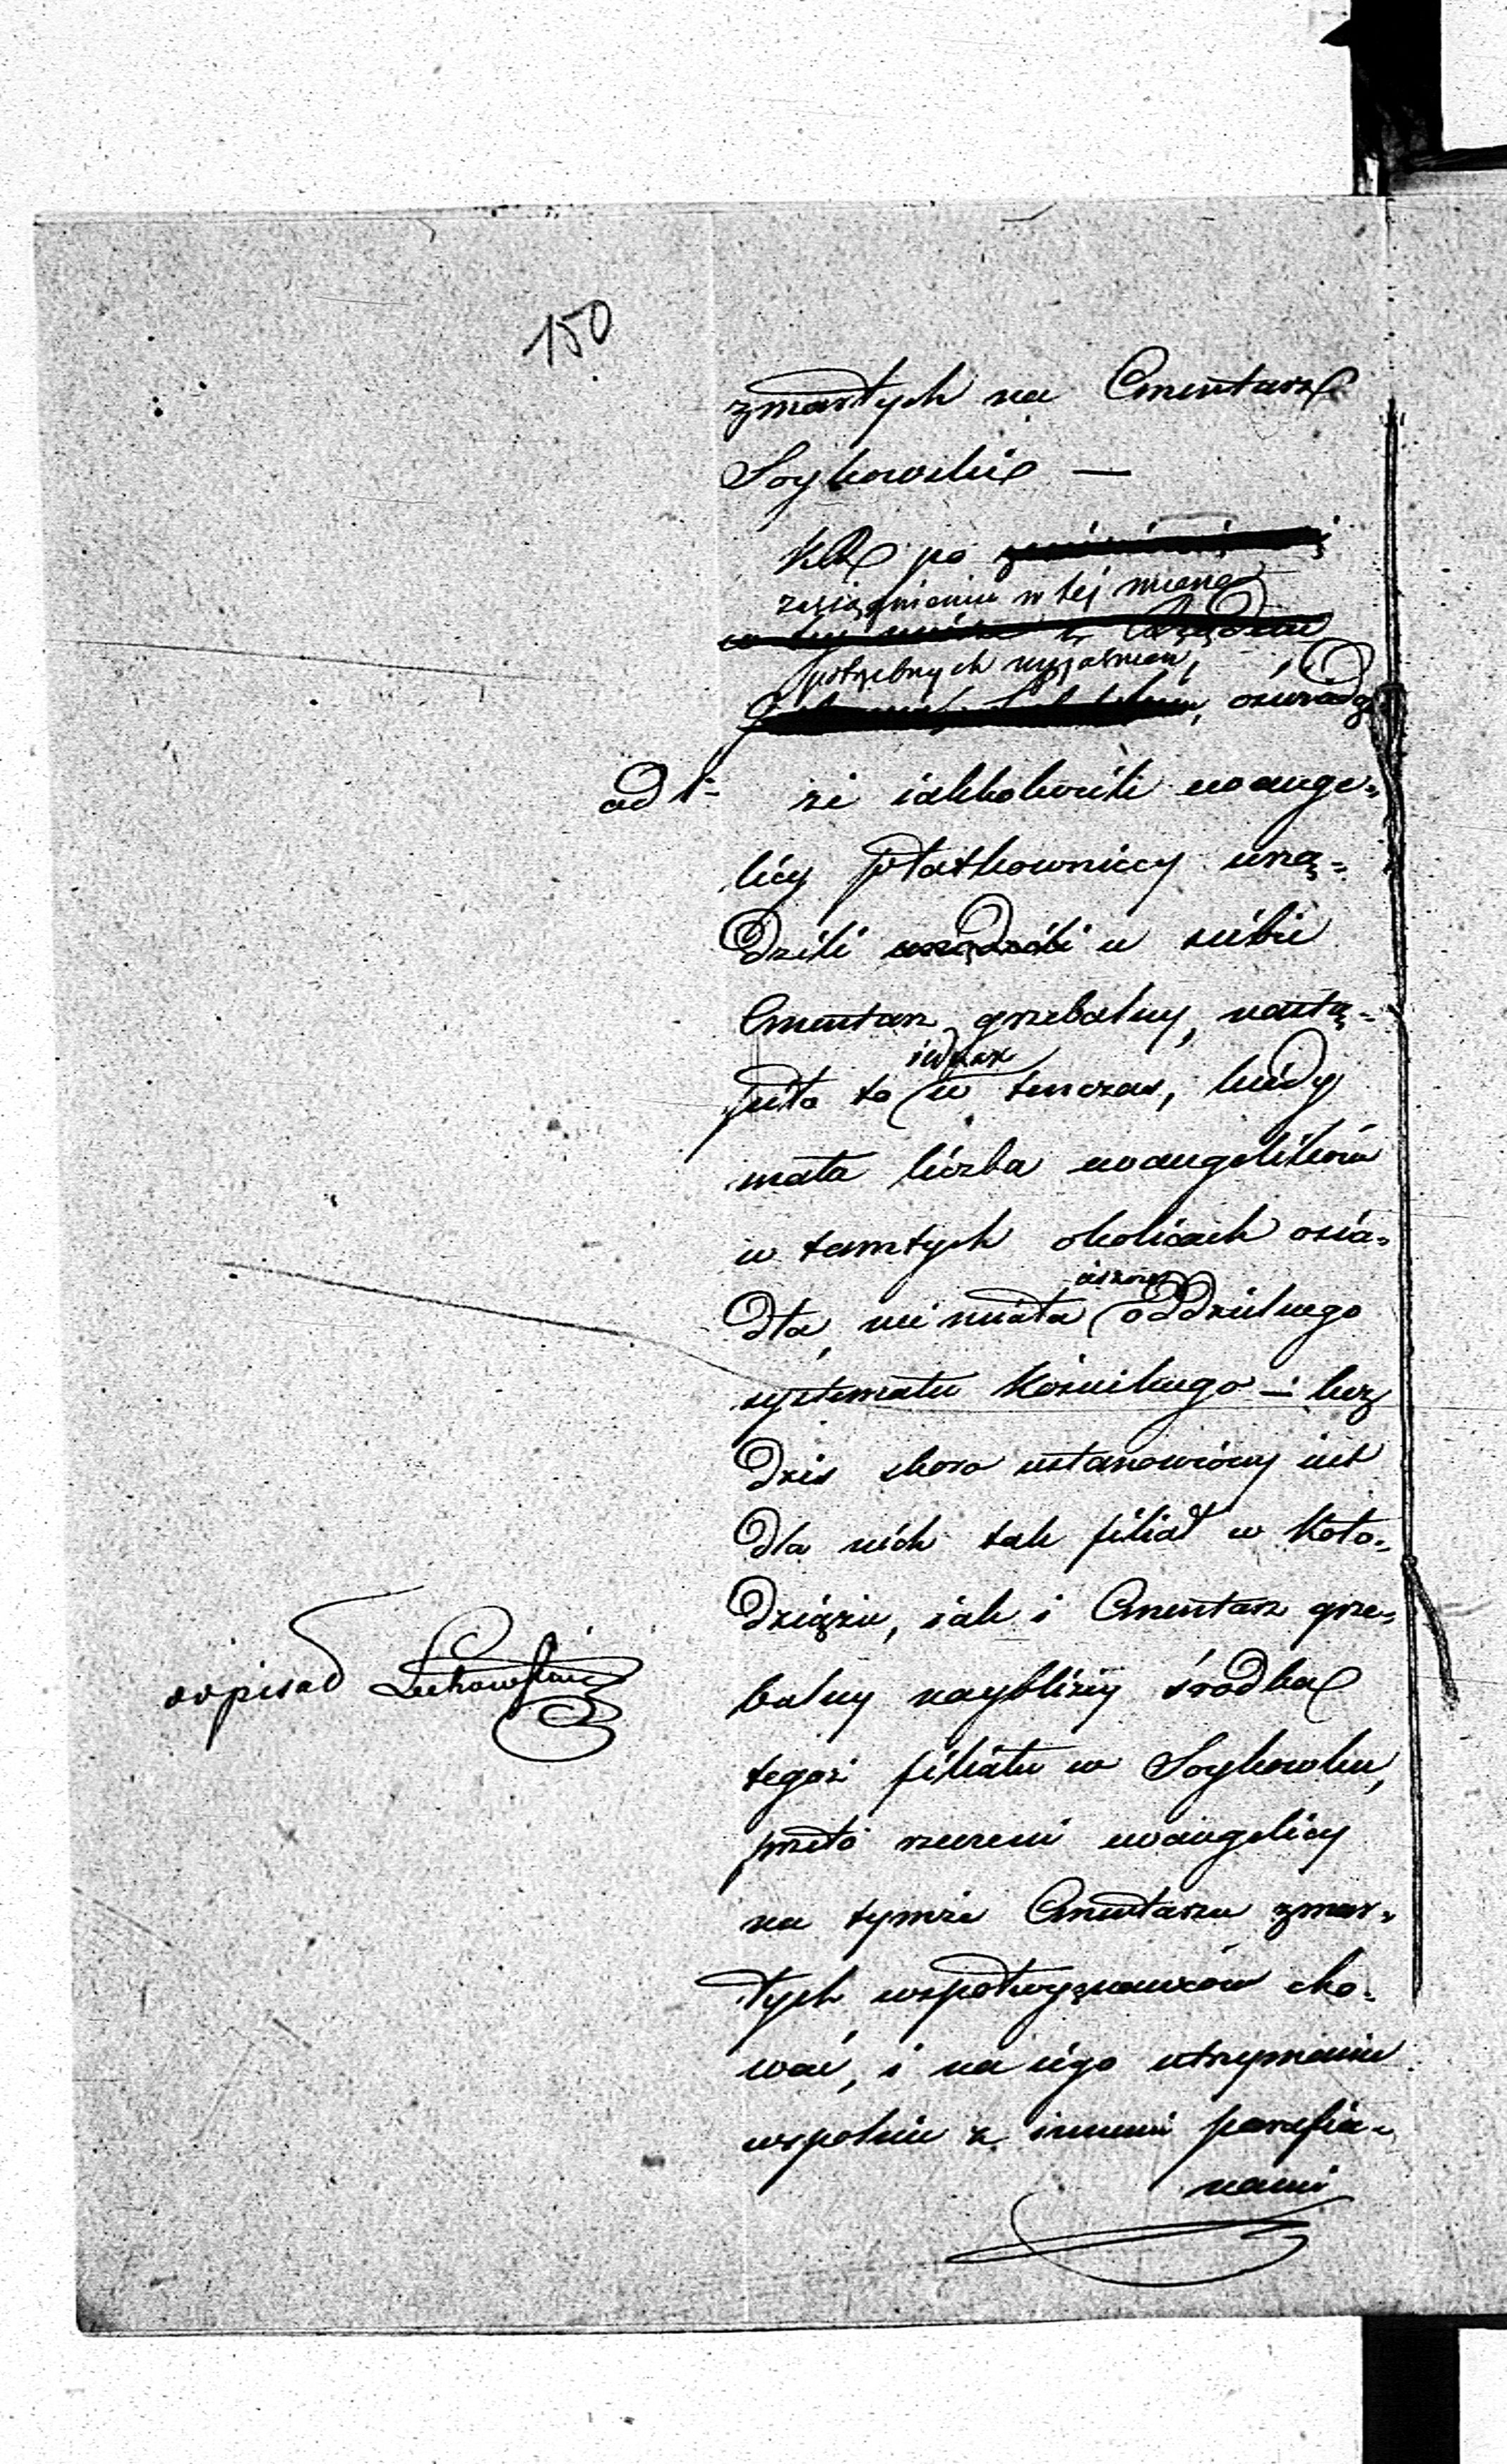 150
zmarłych na Cmentarz
Soykowski —
KRz po
zasiągnieniu w tej mierze
potrzebnych wyjaśnień,
oświadcza
ad 1° że iakkolwiek ewange=
licy Płatkowniccy urzą=
dzili urządzili u siebie
Cmentarz grzebalny, nastą=
iednak
piło to w tenczas, kiedy
mała liczba ewangelików
w tamtych okolicach osia=
ieszcze
dła, nie miała oddzielnego
systematu Kościelnego — lecz
dziś skoro ustanowiony iest
dla nich tak filiał w Koło=
dziążu, iak i Cmentarz grze=
balny naybliższy środka
tegoż filiału w Soykowku,
przeto rzeczeni ewangelicy
na tymże Cmentarzu zmar=
łych współwyznawców cho=
wać, i na iego utrzymanie
wspólnie z innemi parafia=
nami
odpisał